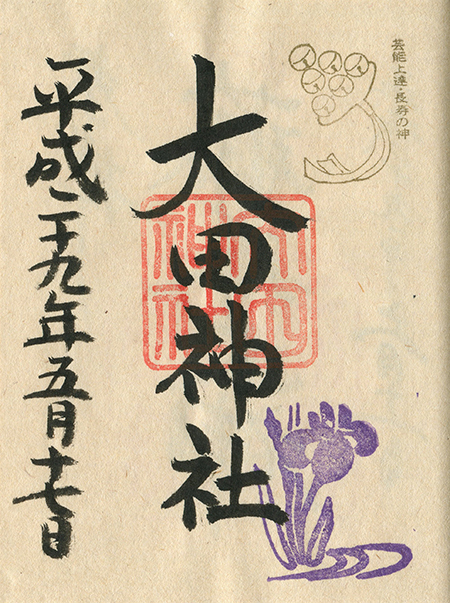 芸能上達・長寿の神
大田神社
平成二十九年五月十七日
大田
神社